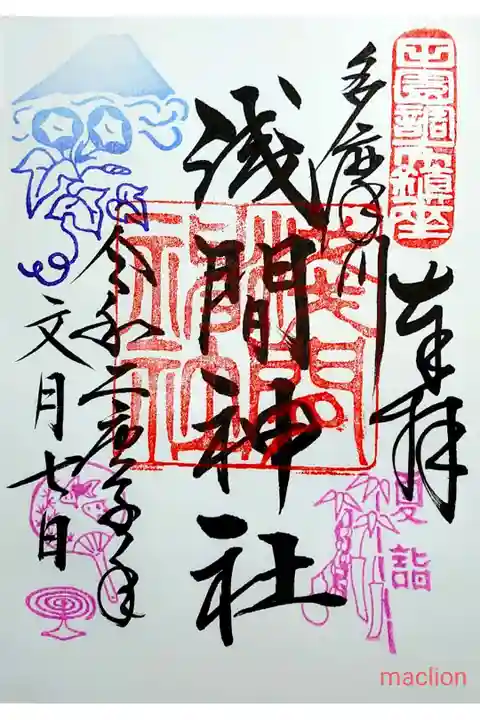 田園調布鎮座
奉拝
多摩川
浅間神社
令和二庚子年
文月七日
夏詣
maclion